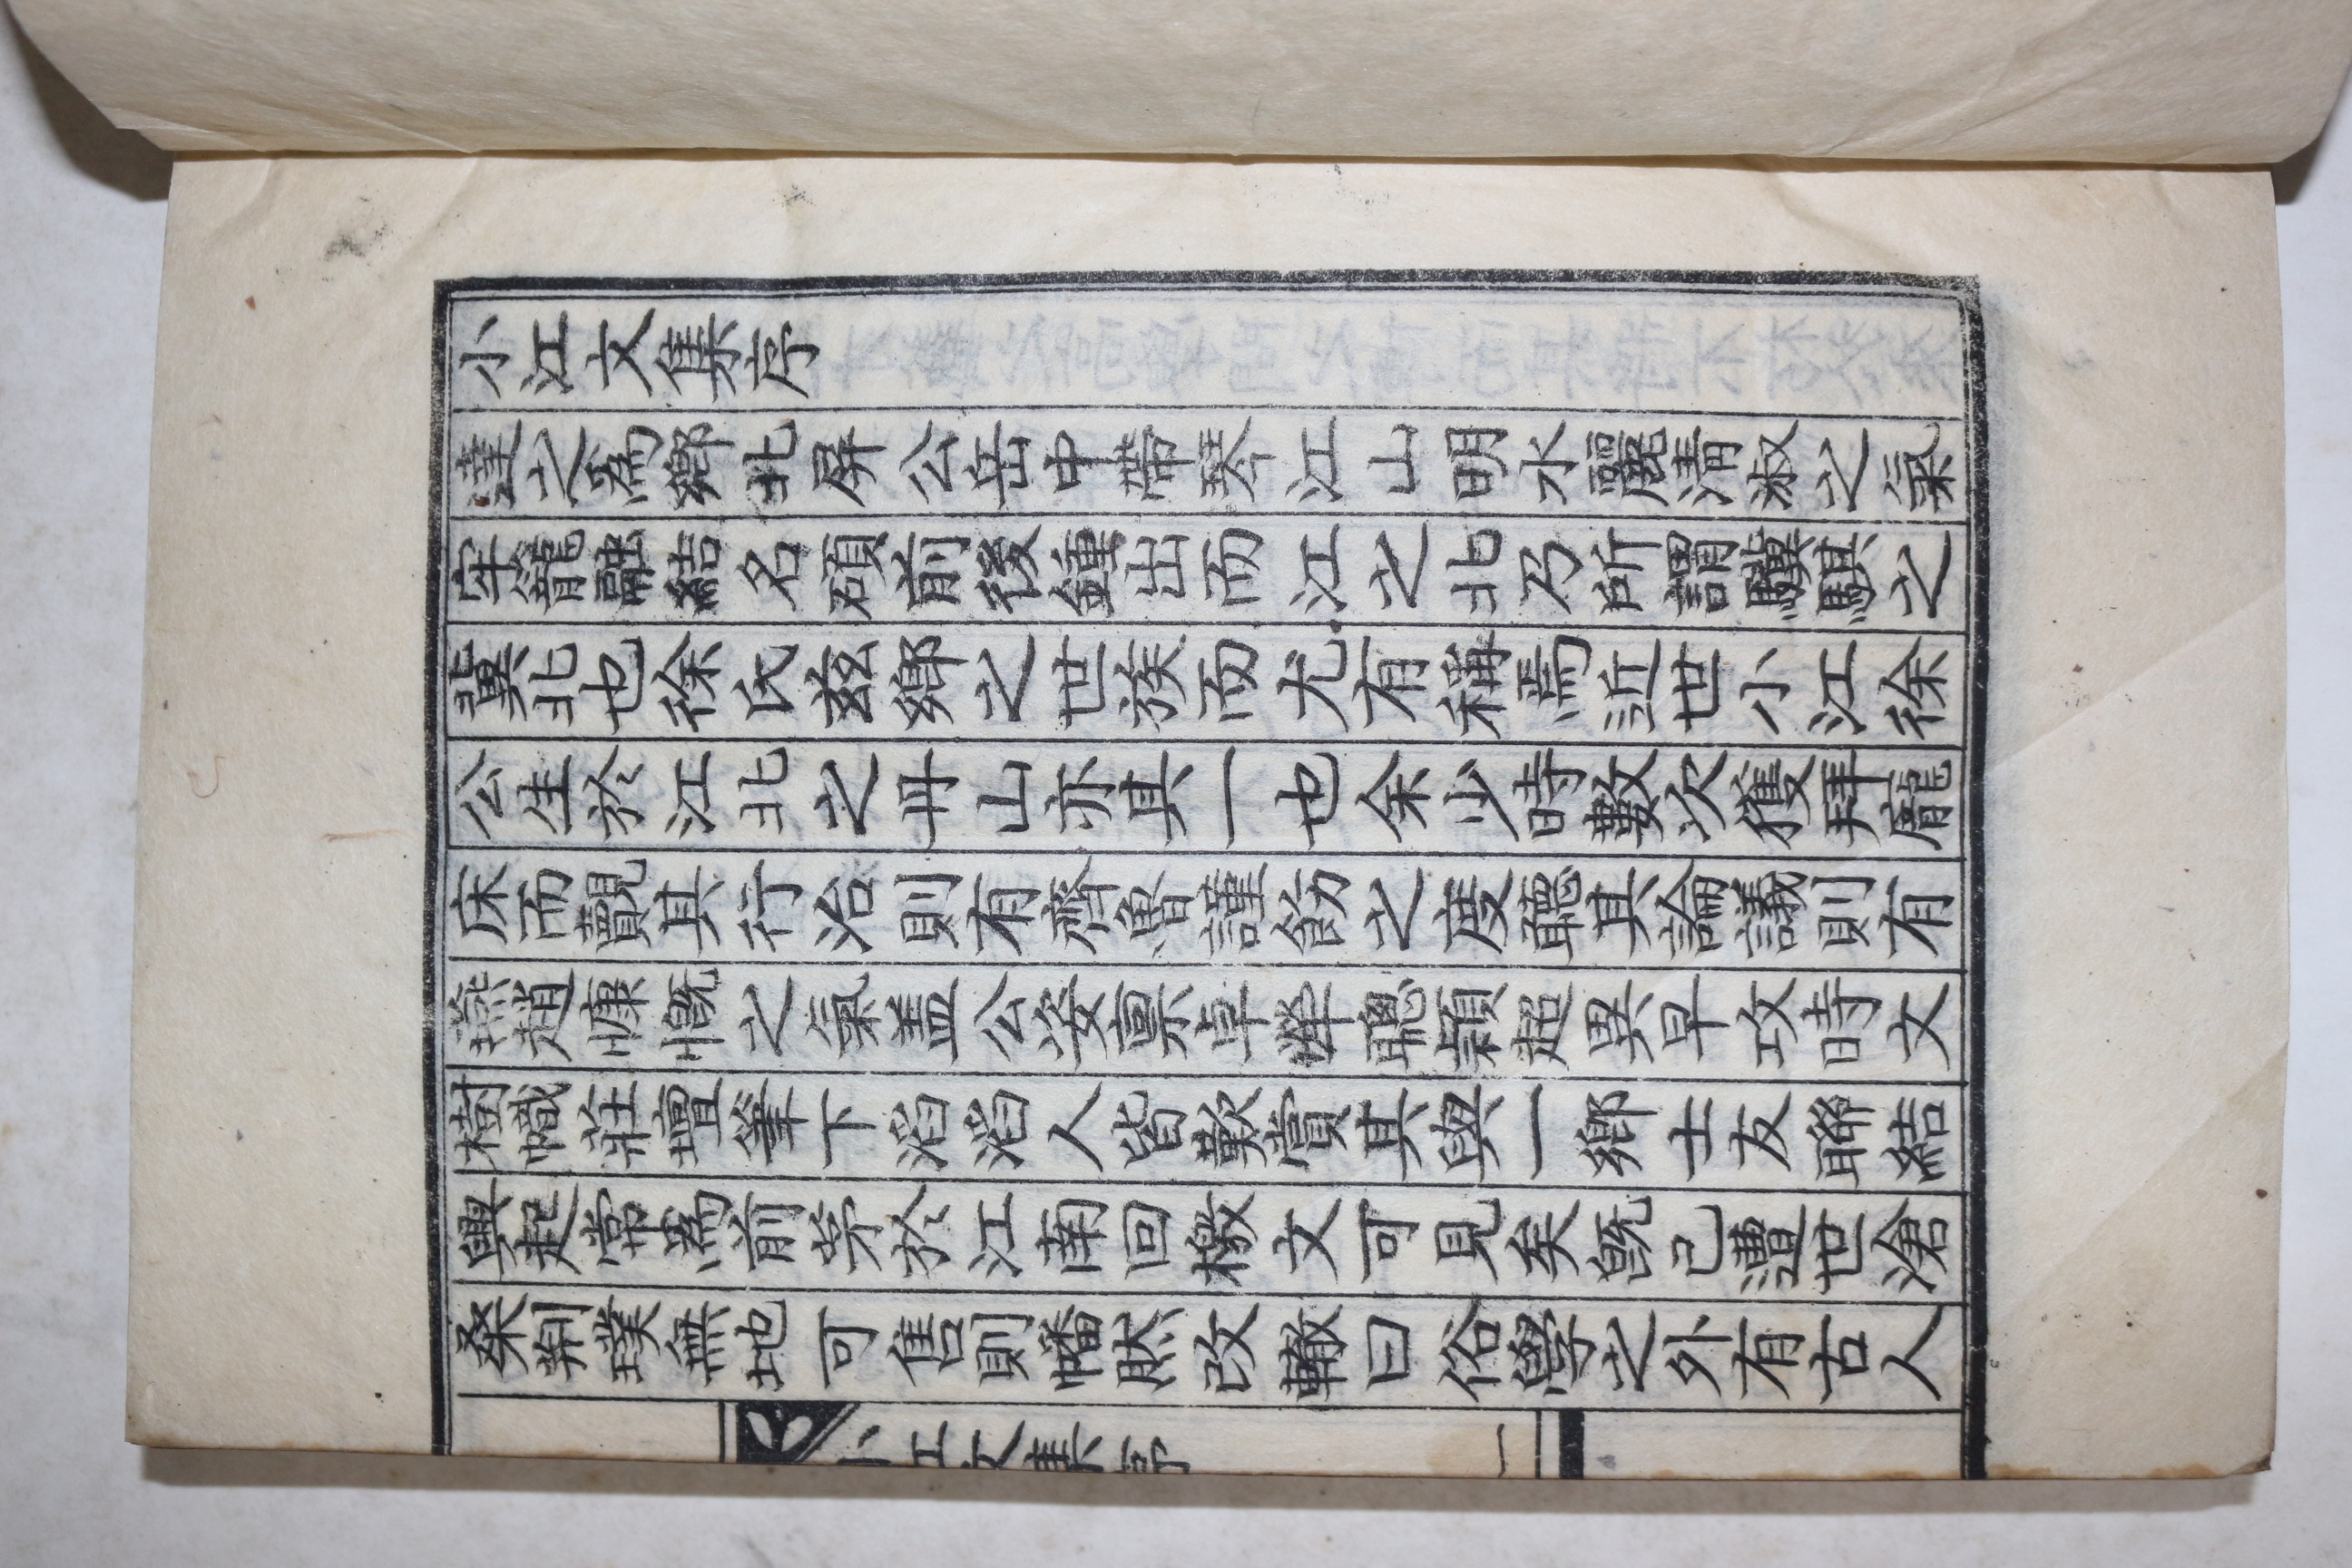 小江文集序
達之爲鄉北屏公岳中帶琴江山明水麗淸淑之氣
牢籠融結名碩前後鍾出而江之北乃所謂驥騏之
冀北也徐氏玆鄉之世族而尤有稱焉近世小江徐
公生於江北之丹山亦其一也余少時數次獲拜龐
床而覿其行治則有齊魯謹飭之度聽其論議則有
燕趙慷慨之氣盖公姿禀卓犖聰穎超異早攻時文
樹幟莊壇筆下滔滔人皆歎賞其與一鄉士友聯結
興起常爲前茅於江南回檄文可見矣旣已遭世滄
桑荆璞無地可售則幡然改轍曰俗學之外有古人
小江文集序
一